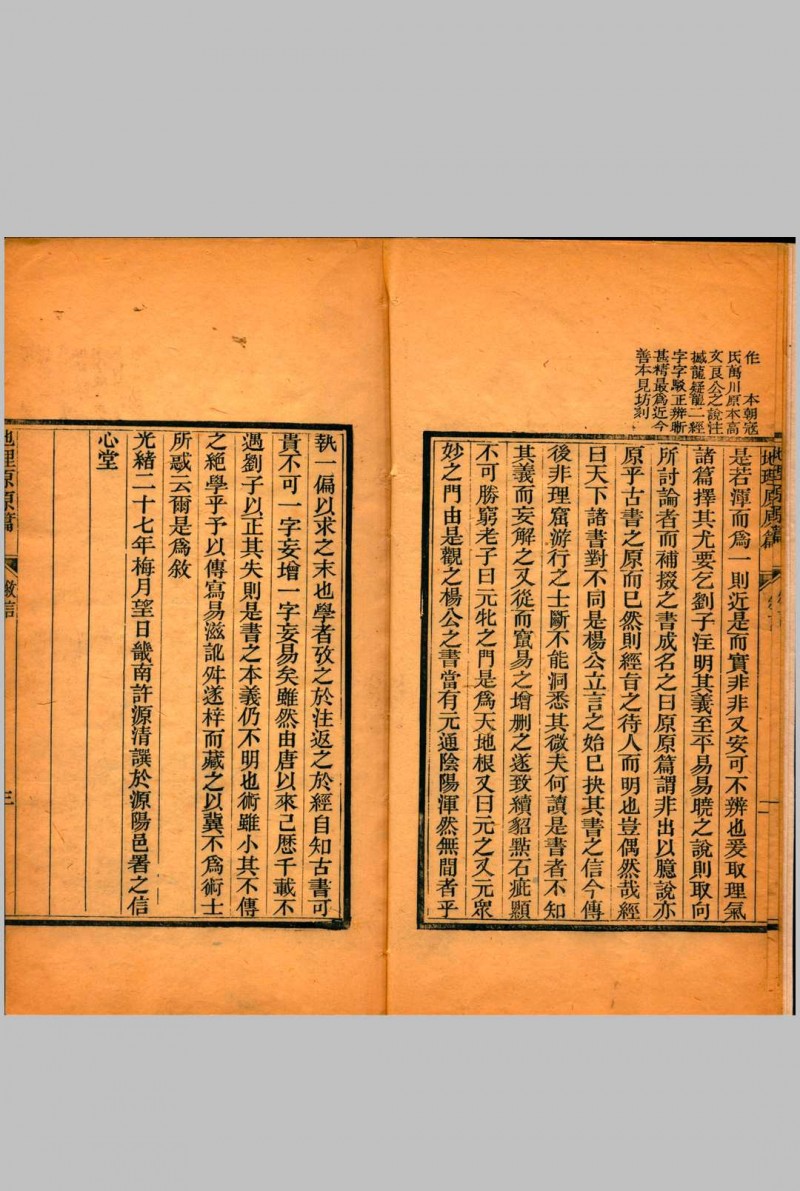 作　本朝寇
氏萬川原本高
文良公之說注
撼龍疑龍二經
字字駁正辨晰
甚精最爲近今
善本見坊刻
地理原原篇
二
是若渾而爲一則近是而實非非又安可不辨也爰取理氣
諸篇擇其尤要乞劉子注明其義至平易易曉之說則取向
所討論者而補掇之書成名之曰原原篇謂非出以臆說亦
原乎古書之原而已然則經旨之待人而明也豈偶然哉經
曰天下諸書對不同是楊公立言之始已抉其書之信今傳
後非理窟游行之士斷不能洞悉其微夫何讀是書者不知
其義而妄解之又從而竄易之增刪之遂致續貂點石疵顯
不可勝窮老子曰元牝之門是爲天地根又曰元之又元衆
妙之門由是觀之楊公之書當有元通陰陽渾然無間者乎
執一偏以求之末也學者攷之於注返之於經自知古書可
貴不可一字妄增一字妄易矣雖然由唐以來已歷千載不
遇劉子以正其失則是書之本義仍不明也術雖小其不傳
之絕學乎予以傳寫易滋訛舛遂梓而藏之以冀不爲術士
所惑云爾是爲敘
光緒二十七年梅月望日畿南許源清譔於源陽邑署之信
心堂
地理原原篇
敘信
三